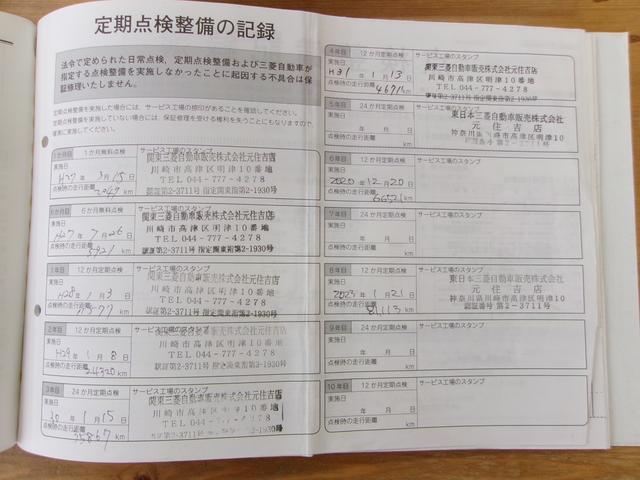 定期点検整備の記録
法令で定められた日常点検、定期点検整備および三菱自動車が
指定する点検整備を実施しなかったことに起因する不具合は保
証修理いたしません。
定期点検整備を実施した場合には、サービス工場の捺印があることを確認してください。
定期点検整備を実施していない場合には、保証修理を受ける権利を失うことにもなりますので、
確実に実施してください。
1か月目 1か月無料点検 サービス工場のスタンプ
年 3月15日
点検時の走行距離 km
関東三菱自動車販売株式会社元住吉店
川崎市高津区明津10番地
TEL 044-777-4278
認証第2-3711号 指定関東指第2-1930号
6か月目 6か月無料点検 サービス工場のスタンプ
H27年 7月26日
点検時の走行距離 5921 km
関東三菱自動車販売株式会社元住吉店
川崎市高津区明津10番地
TEL 044-777-4278
認証第2-3711号 指定関東指第2-1930号
1年目 12か月定期点検 サービス工場のスタンプ
H28年 1月3日
点検時の走行距離 km
関東三菱自動車販売株式会社元住吉店
川崎市高津区明津10番地
TEL 044-777-4278
認証第2-3711号 指定関東指第2-1930号
2年目 12か月定期点検 サービス工場のスタンプ
H29年 1月8日
点検時の走行距離 24320 km
関東三菱自動車販売株式会社元住吉店
川崎市高津区明津10番地
TEL 044-777-4278
認証第2-3711号 指定関東指第2-1930号
3年目 24か月定期点検 サービス工場のスタンプ
30年 1月15日
点検時の走行距離 35867 km
関東三菱自動車販売株式会社元住吉店
川崎市高津区明津10番地
TEL 044-777-4278
認証第2-3711号 指定関東指第2-1930号
4年目 12か月定期点検 サービス工場のスタンプ
H31年 1月13日
点検時の走行距離 km
関東三菱自動車販売株式会社元住吉店
川崎市高津区明津10番地
TEL 044-777-4278
認証第2-3711号 指定関東指第2-1930号
5年目 24か月定期点検 サービス工場のスタンプ
年 月 日
点検時の走行距離 km
東日本三菱自動車販売株式会社
元住吉店
神奈川県川崎市高津区明津10
6年目 12か月定期点検 サービス工場のスタンプ
2020年12月20日
点検時の走行距離 km
7年目 24か月定期点検 サービス工場のスタンプ
年 月 日
点検時の走行距離 km
8年目 12か月定期点検 サービス工場のスタンプ
2023年 1月21日
点検時の走行距離 81113 km
東日本三菱自動車販売株式会社
元住吉店
神奈川県川崎市高津区明津10
認証番号第2-3711号
9年目 24か月定期点検 サービス工場のスタンプ
年 月 日
点検時の走行距離 km
10年目 12か月定期点検 サービス工場のスタンプ
年 月 日
点検時の走行距離 km